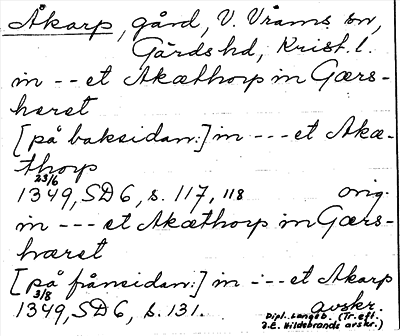 Åkarp, gård, V. Vrams sn,
Gärds hd, Krist. l.
in -- et Akæthorp in Gærs-
hæret
[på baksidan:] in --- et Akæ-
thorp
23/6
1349, SD 6, s. 117, 118 orig.
in --- et Akæthorp in Gærs-
hæret
[på frånsidan:] in --- et Akarp
3/8
1349, SD 6, s. 131. avskr.
Dipl. Langeb. (Tr. eft.
B.E. Hildebrands avskr.)